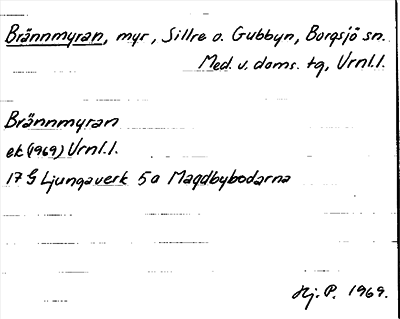 Brännmyran, myr, Sillre o. Gubbyn, Borgsjö sn.
Med. v. doms. tg, Vrnl.l.
Brännmyran
ek (1969) Vrnl.l.
17 G Ljungaverk 5a Magdbybodarna
Hj. P. 1969.